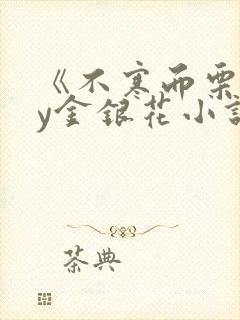 《不寒而栗
y金银花小说
茶典